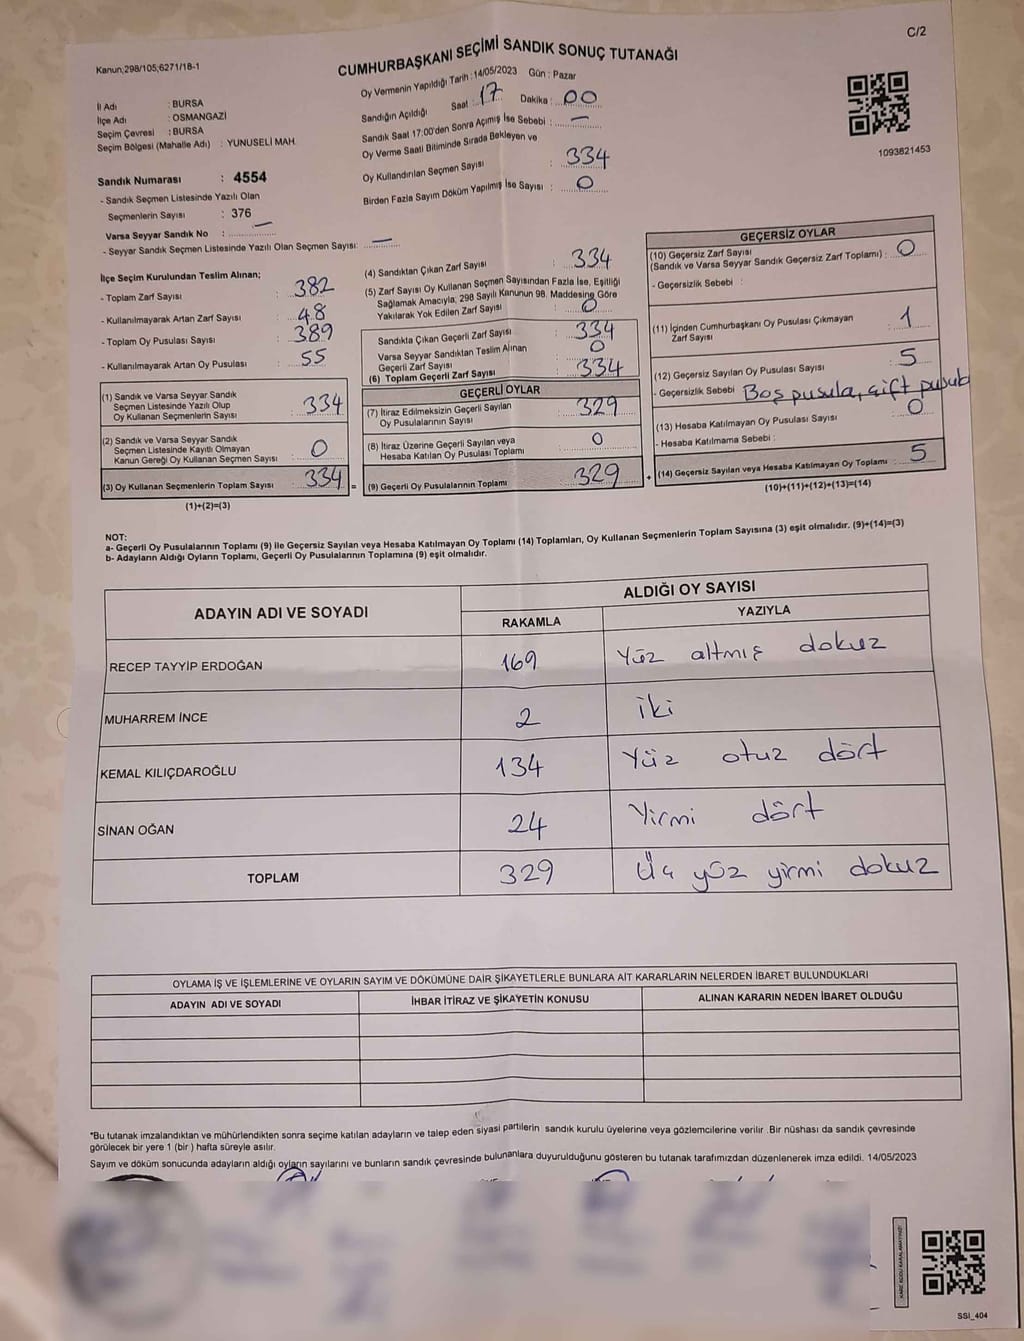 C/2
Kanun;298/105;6271/18-1
CUMHURBAŞKANI SEÇİMİ SANDIK SONUÇ TUTANAĞI
Oy Vermenin Yapıldığı Tarih : 14/05/2023 Gün : Pazar
Sandığın Açıldığı Saat : 17 Dakika : 00
Sandık Saat 17:00'den Sonra Açımış İse Sebebi : —
Oy Verme Saati Bitiminde Sırada Bekleyen ve
Oy Kullandırılan Seçmen Sayısı : 334
Birden Fazla Sayım Döküm Yapılmış İse Sayısı : 0
1093821453
İl Adı : BURSA
İlçe Adı : OSMANGAZİ
Seçim Çevresi : BURSA
Seçim Bölgesi (Mahalle Adı) : YUNUSELİ MAH.
Sandık Numarası : 4554
- Sandık Seçmen Listesinde Yazılı Olan
Seçmenlerin Sayısı : 376
Varsa Seyyar Sandık No : —
- Seyyar Sandık Seçmen Listesinde Yazılı Olan Seçmen Sayısı: —
İlçe Seçim Kurulundan Teslim Alınan;
- Toplam Zarf Sayısı : 382
- Kullanılmayarak Artan Zarf Sayısı : 48
- Toplam Oy Pusulası Sayısı : 389
- Kullanılmayarak Artan Oy Pusulası : 55
(1) Sandık ve Varsa Seyyar Sandık
Seçmen Listesinde Yazılı Olup
Oy Kullanan Seçmenlerin Sayısı : 334
(2) Sandık ve Varsa Seyyar Sandık
Seçmen Listesinde Kayıtlı Olmayan
Kanun Gereği Oy Kullanan Seçmen Sayısı : 0
(3) Oy Kullanan Seçmenlerin Toplam Sayısı : 334 =
(1)+(2)=(3)
(4) Sandıktan Çıkan Zarf Sayısı : 334
(5) Zarf Sayısı Oy Kullanan Seçmen Sayısından Fazla İse, Eşitliği
Sağlamak Amacıyla, 298 Sayılı Kanunun 98. Maddesine Göre
Yakılarak Yok Edilen Zarf Sayısı : 0
Sandıkta Çıkan Geçerli Zarf Sayısı : 334
Varsa Seyyar Sandıktan Teslim Alınan
Geçerli Zarf Sayısı : 0
(6) Toplam Geçerli Zarf Sayısı : 334
GEÇERLİ OYLAR
(7) İtiraz Edilmeksizin Geçerli Sayılan
Oy Pusulalarının Sayısı : 329
(8) İtiraz Üzerine Geçerli Sayılan veya
Hesaba Katılan Oy Pusulası Toplamı : 0
(9) Geçerli Oy Pusulalarının Toplamı : 329 +
GEÇERSİZ OYLAR
(10) Geçersiz Zarf Sayısı
(Sandık ve Varsa Seyyar Sandık Geçersiz Zarf Toplamı) : 0
- Geçersizlik Sebebi :
(11) İçinden Cumhurbaşkanı Oy Pusulası Çıkmayan
Zarf Sayısı : 1
(12) Geçersiz Sayılan Oy Pusulası Sayısı : 5
- Geçersizlik Sebebi : Boş pusula, çift pusula
(13) Hesaba Katılmayan Oy Pusulası Sayısı : 0
- Hesaba Katılmama Sebebi :
(14) Geçersiz Sayılan veya Hesaba Katılmayan Oy Toplamı : 5
(10)+(11)+(12)+(13)=(14)
NOT:
a- Geçerli Oy Pusulalarının Toplamı (9) ile Geçersiz Sayılan veya Hesaba Katılmayan Oy Toplamı (14) Toplamları, Oy Kullanan Seçmenlerin Toplam Sayısına (3) eşit olmalıdır. (9)+(14)=(3)
b- Adayların Aldığı Oyların Toplamı, Geçerli Oy Pusulalarının Toplamına (9) eşit olmalıdır.
ADAYIN ADI VE SOYADI ALDIĞI OY SAYISI
RAKAMLA YAZIYLA
RECEP TAYYİP ERDOĞAN 169 Yüz altmış dokuz
MUHARREM İNCE 2 iki
KEMAL KILIÇDAROĞLU 134 Yüz otuz dört
SİNAN OĞAN 24 Yirmi dört
TOPLAM 329 Üç yüz yirmi dokuz
OYLAMA İŞ VE İŞLEMLERİNE VE OYLARIN SAYIM VE DÖKÜMÜNE DAİR ŞİKAYETLERLE BUNLARA AİT KARARLARIN NELERDEN İBARET BULUNDUKLARI
ADAYIN ADI VE SOYADI İHBAR İTİRAZ VE ŞİKAYETİN KONUSU ALINAN KARARIN NEDEN İBARET OLDUĞU
*Bu tutanak imzalandıktan ve mühürlendikten sonra seçime katılan adayların ve talep eden siyasi partilerin sandık kurulu üyelerine veya gözlemcilerine verilir .Bir nüshası da sandık çevresinde
görülecek bir yere 1 (bir ) hafta süreyle asılır.
Sayım ve döküm sonucunda adayların aldığı oyların sayılarını ve bunların sandık çevresinde bulunanlara duyurulduğunu gösteren bu tutanak tarafımızdan düzenlenerek imza edildi. 14/05/2023
KARE KODU KARALAMAYINIZ!
SSI_404